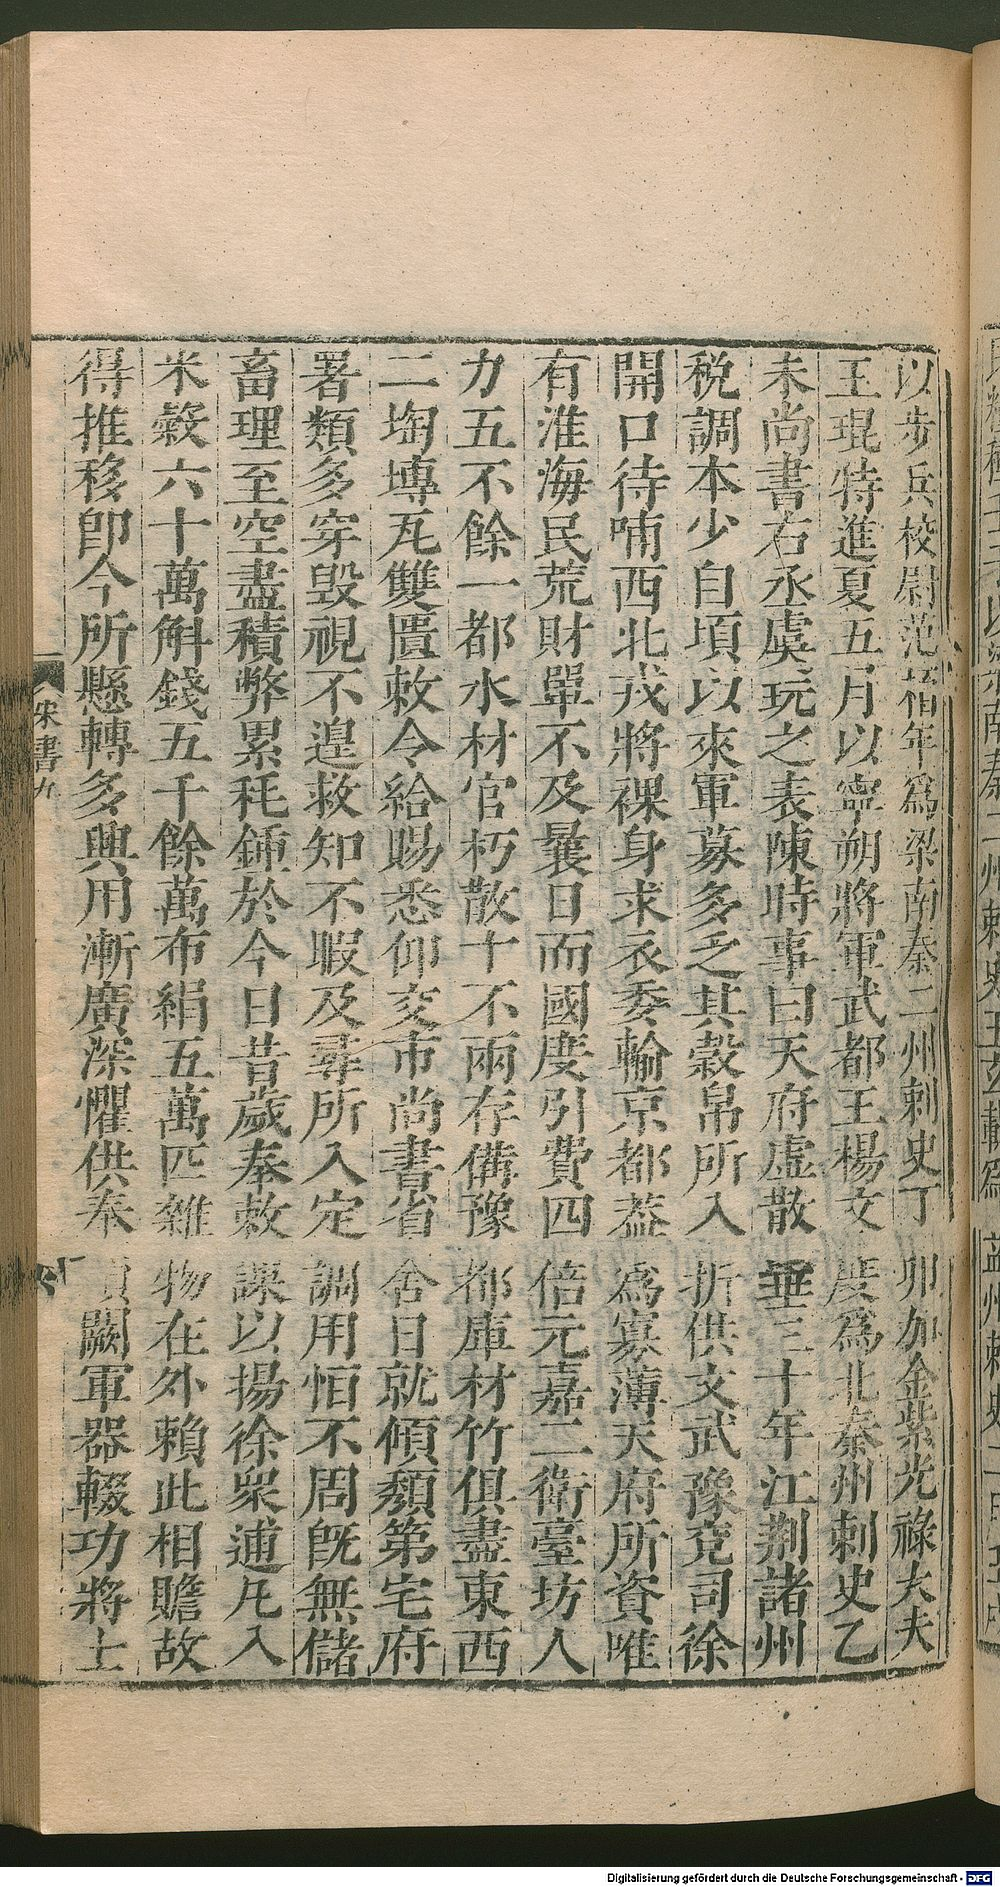 以步兵校尉范栢年爲梁南秦二州刺史丁卯加金紫光祿大夫
王琨特進夏五月以寧朔將軍武都王楊文度爲北秦州刺史乙
未尚書右丞虞玩之表陳時事曰天府虛散垂三十年江荆諸州
税調本少自頃以來軍募多乏其穀帛所入折供文武豫兗司徐
開口待哺西北戎將裸身求衣委輸京都葢爲寡薄天府所資唯
有淮海民荒財單不及曩日而國度引費四倍元嘉二衛臺坊人
力五不餘一都水材官朽散十不兩存備豫都庫材竹俱盡東西
二堈塼瓦雙匱敕令給賜悉仰交市尚書省舍日就傾頽第宅府
署類多穿毁視不遑救知不暇及尋所入定調用恒不周旣無儲
畜理至空盡積弊累耗鍾於今日昔歲奉敕課以揚徐衆逋凡入
米穀六十萬斛錢五千餘萬布絹五萬匹雜物在外賴此相贍故
得推移卽今所懸轉多興用漸廣深懼供奉頓闕軍器輟功將士
宋書九
Digitalisierung gefördert durch die Deutsche Forschungsgemeinschaft - DFG